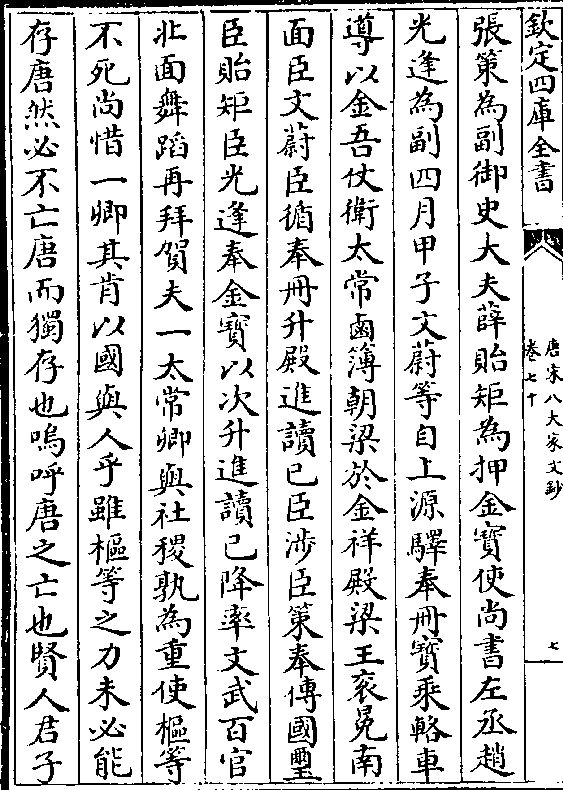 欽定四庫全書
唐宋八大家文鈔
卷七十
七
張策為副御史大夫薛貽矩為押金寳使尚書左丞趙
光逢為副四月甲子文蔚等自上源驛奉冊寳乘輅車
導以金吾仗衛太常鹵簿朝梁於金祥殿梁王衮冕南
面臣文蔚臣循奉冊升殿進讀已臣渉臣策奉傳國璽
臣貽矩臣光逢奉金寳以次升進讀已降率文武百官
北面舞蹈再拜賀夫一太常卿與社稷孰為重使樞等
不死尚惜一卿其肯以國與人乎雖樞等之力未必能
存唐然必不亡唐而獨存也嗚呼唐之亡也賢人君子